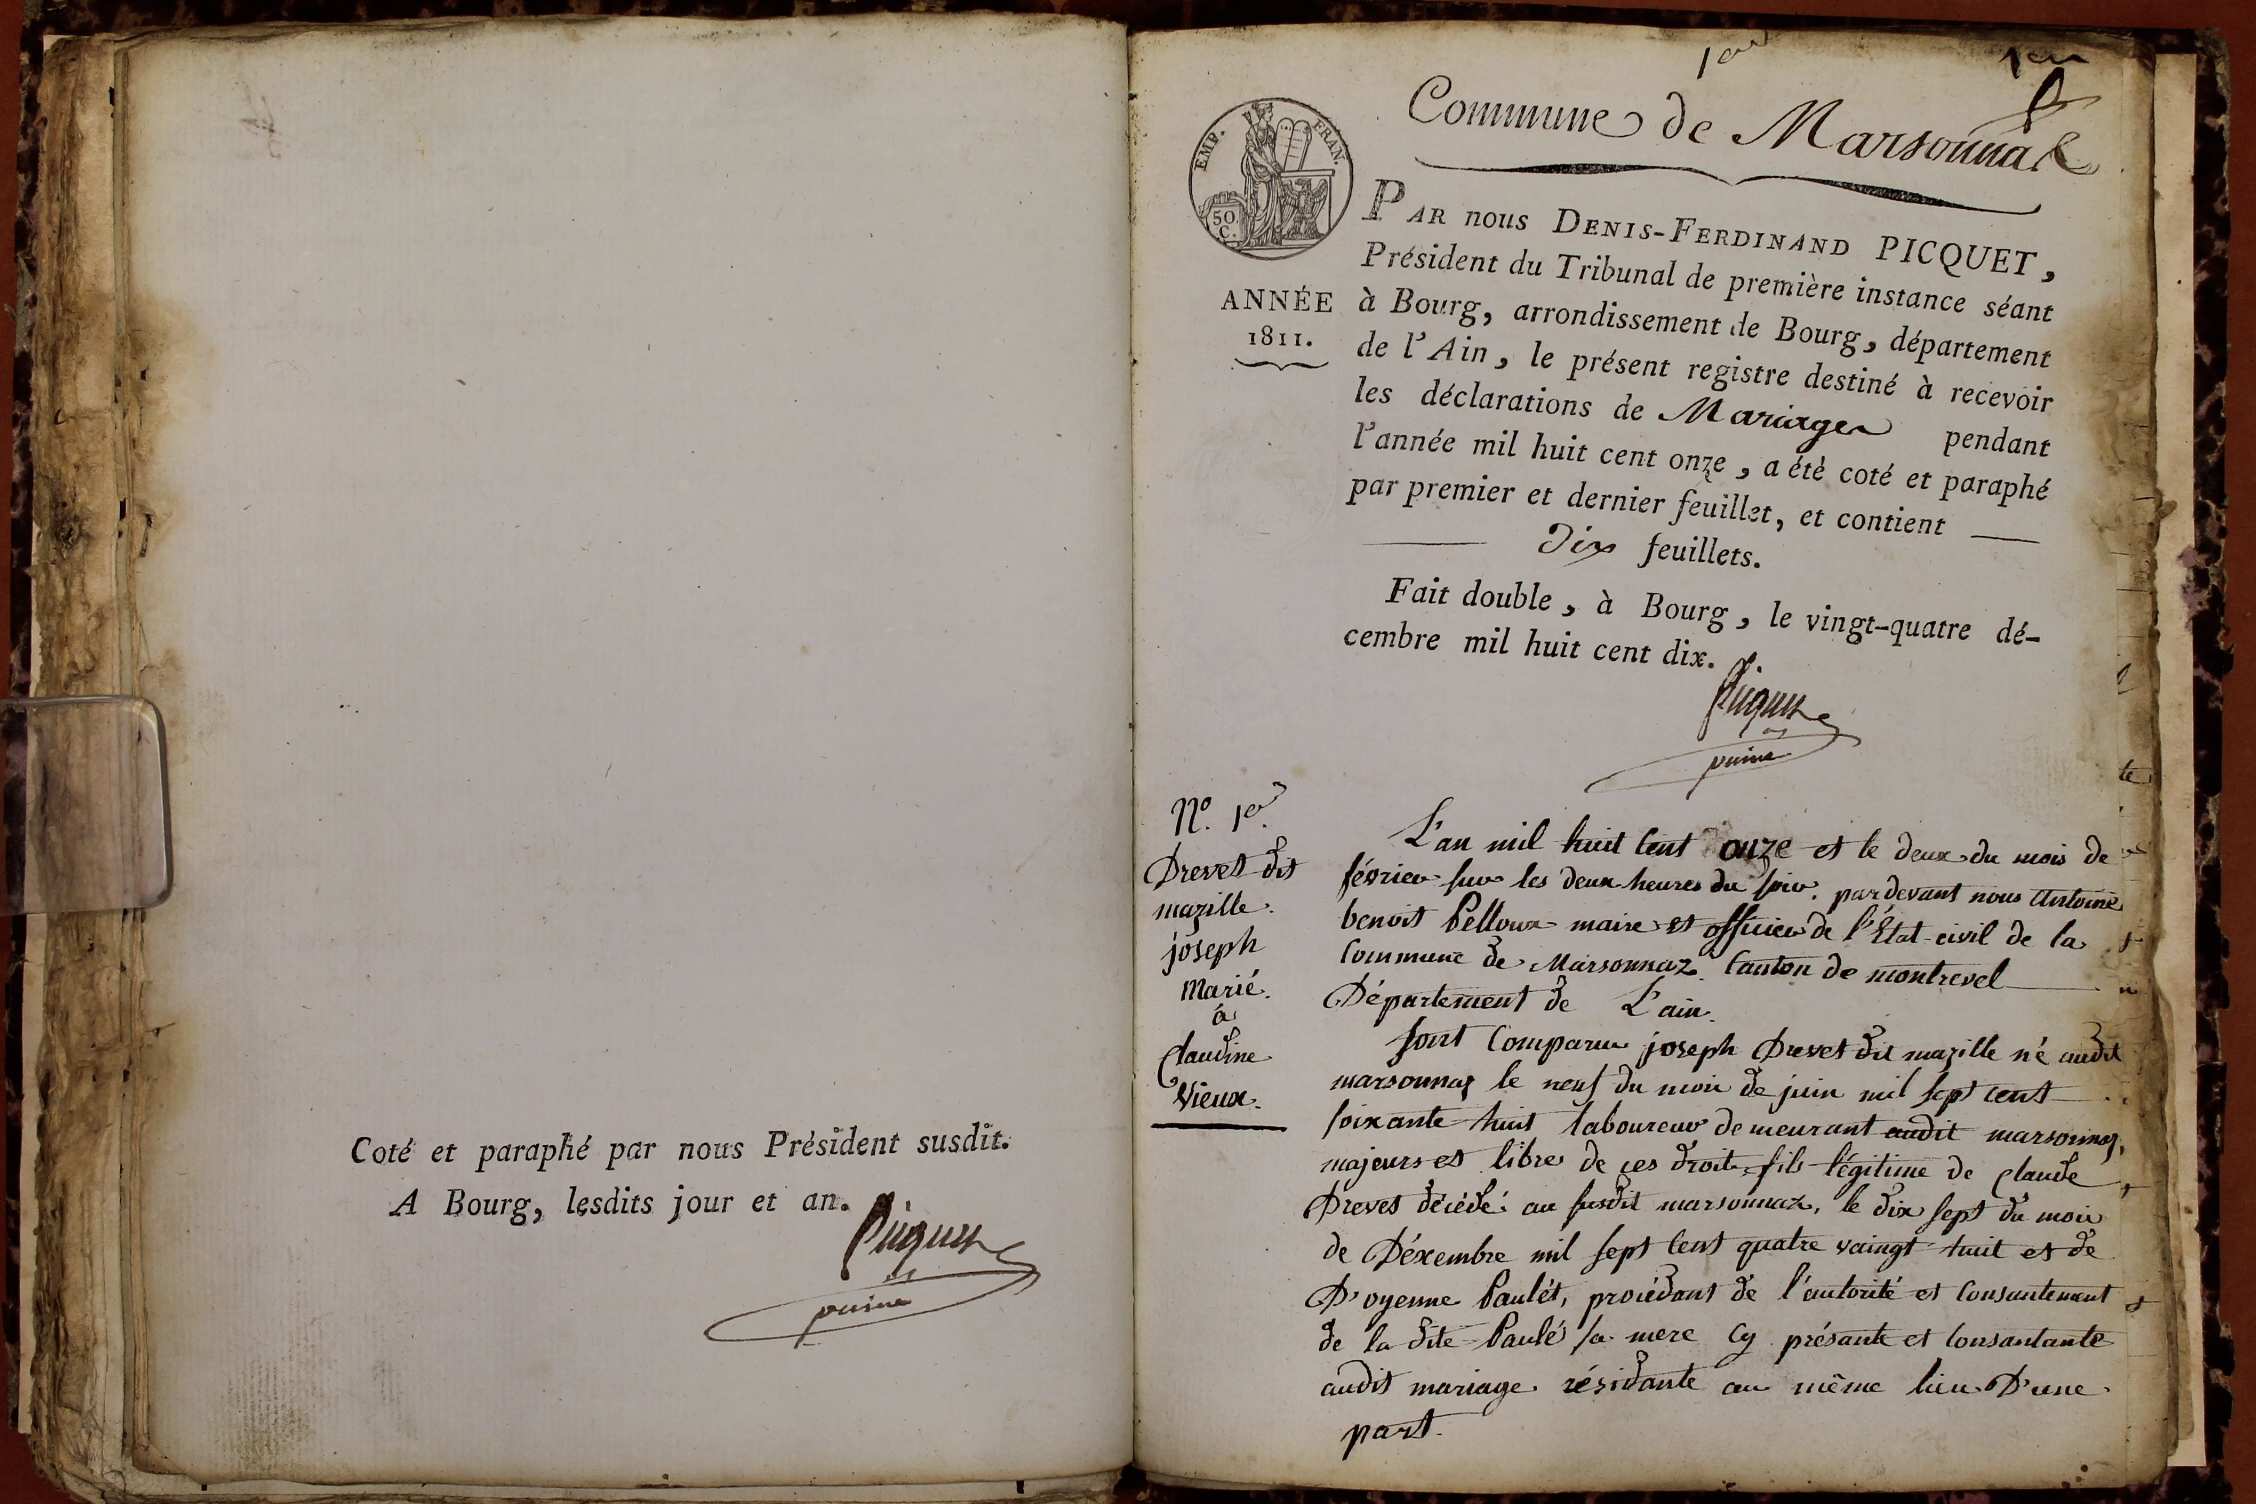 Coté et paraphé par nous Président susdit.
A Bourg, lesdits jour et an.
Picquet
1er
1er
Commune de Marsonnaz
EMP. FRAN.
50
C.
ANNÉE
1811.
PAR nous DENIS-FERDINAND PICQUET,
Président du Tribunal de première instance séant
à Bourg, arrondissement de Bourg, département
de l'Ain, le présent registre destiné à recevoir
les déclarations de Mariages pendant
l'année mil huit cent onze, a été coté et paraphé
par premier et dernier feuillet, et contient
dix feuillets.
Fait double, à Bourg, le vingt-quatre dé-
cembre mil huit cent dix.
Picquet
No. 1er.
Drevet dit
mazille.
joseph
Marié.
à
Claudine
Vieux.
L'an mil huit Cent onze et le deux du mois de
février sur les deux heures du soir. pardevant nous Antoine
benoit Pelloux maire et officier de l'État-civil de la
Commune de Marsonnaz. Canton de montrevel
Département de L'ain.
sont Comparu joseph Drevet dit mazille né audit
marsonnaz le neuf du mois de juin mil sept cent
soixante huit laboureur demeurant audit marsonnaz,
majeurs et libre de ces droits, fils légitime de Claude
Drevet décédé au susdit marsonnaz, le dix sept du mois
de Déxembre mil sept Cent quatre vaingt huit et de
D'oyenne Paulét, procédant de l'autorité et Consantement
de la dite Paulé sa mere Cy présante et Consantante
audit mariage résidante au même lieu D'une
part.